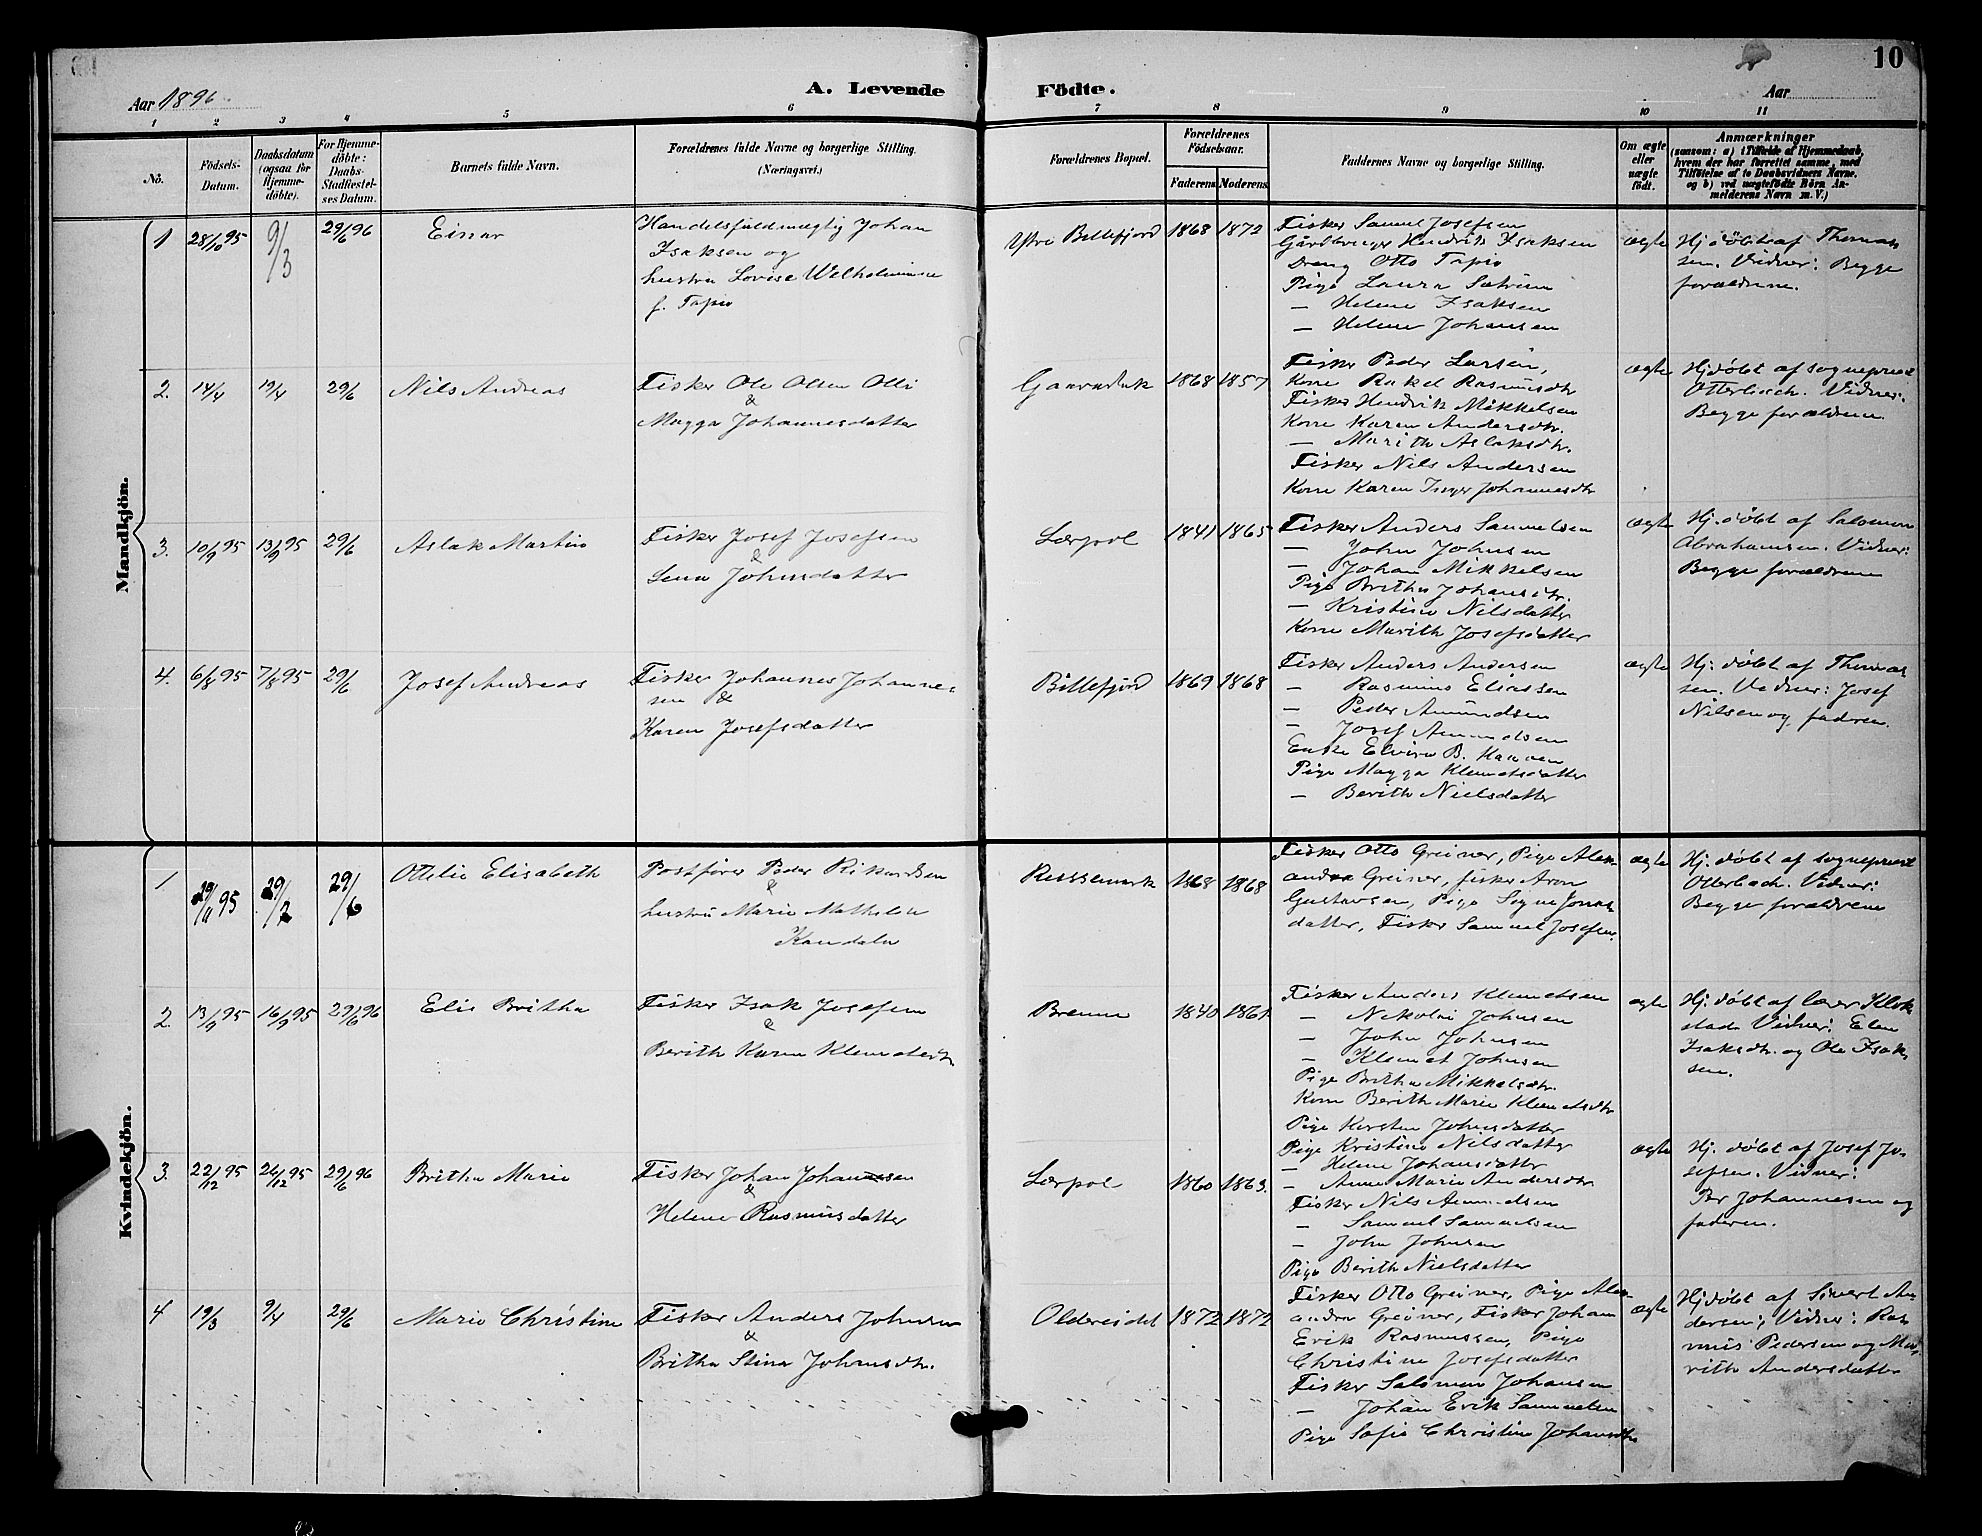 10
Aar 1896.
A. Levende Födte.
Aar
1 2 3 4 5 6 7 8 9 10 11
No.
Födsels-Datum.
Daabsdatum (ogsaa for Hjemme-döbte).
For Hjemme-döbte: Daabs-Stadfæstel-ses Datum.
Barnets fulde Navn.
Forældrenes fulde Navne og borgerlige Stilling.
(Næringsvei.)
Forældrenes Bopæl.
Forældrenes Födselsaar.
Faderens Moderens
Faddernes Navne og borgerlige Stilling.
Om ægte eller uægte födt.
Anmærkninger
(saasom: a) i Tilfælde af Hjemmedaab,
hvem der har forrettet samme, med
Tilföielse af to Daabsvidners Navne.
og b) ved uægtefödte Börn An-
melderens Navn m. V.)
Mandkjön.
1 28/10 95 9/3 29/6 96 Einar
Handelsfuldmægtig Johan
Isaksen og
hustru Lovise Wilhelmine
f. Tapio
Ystre Billefjord 1868 1872
Fisker Samuel Josefsen
Gårdbruger Hendrik Isaksen
Dreng Otto Tapio
Pige Laura
— Helene Isaksen
— Helene Johansen
ægte
Hj döbt af Thomas
sen. Vidner: Begge
forældrene.
2. 14/4 19/4 29/6 Nils Andreas
Fisker Ole Olsen Olli
&
Magga Johannesdatter
1868 1857
Fisker Peder Larsen,
Kone Rakel Rasmusdtr
Fisker Hendrik Mikkelsen
Kone Karen Andersdtr.
— Marith Aslaksdtr.
Fisker Nils Andersen
Kone Karen Inger Johannesdtr
ægte
Hj döbt af sogneprest
Otterbech. Vidner:
Begge forældrene.
3. 10/9 95 13/9 95 29/6 Aslak Martin
Fisker Josef Josefsen
&
Lena Johnsdatter
Lærpol 1841 1865
Fisker Anders Samuelsen
— John Johnsen
— Johan Mikkelsen
Pige Britha Johansdtr.
— Kristine Nilsdatter
Kone Marith Josefsdatter
ægte
Hj. döbt af Salomon
Abrahamsen. Vidner:
Begge forældrene
4. 6/8 95 7/8 95 29/6 Josef Andreas
Fisker Johannes Johannes-
sen &
Karen Josefsdatter
Billefjord 1869 1868
Fisker Anders Andersen
— Rasmus Eliassen
— Peder Amundsen
— Josef Amundsen
Enke Elvira B.
Pige Magga Klemetsdatter
— Berith Nielsdatter
ægte
Hj. döbt af Thomas
sen. Vidner: Josef
Nilsen og faderen.
Kvindekjön.
1 29/11 95 29/2 29/6 Ottilie Elisabeth
Postförer Peder Rikardsen
&
hustru Marie Mathilde
1868 1868
Fisker Otto Greiner, Pige Alex-
andra Greiner, fisker Aron
Gustavsen, Pige Signe Jonas
datter, Fisker Samuel Josefsen.
ægte
Hj. döbt af sogneprest
Otterbech. Vidner:
Begge forældrene
2. 13/9 95 16/9 95 29/6 96 Elie Britha
Fisker Isak Josefsen
&
Berith Karen Klemetsdtr
Brenne 1840 1861.
Fisker Anders Klemetsen
— Nikolai Johnsen
— John Johnsen
— Klemet Johnsen
Pige Britha Mikkelsdtr.
Kone Berith Marie Klemetsdtr
Pige Kirsten Johnsdatter
ægte
Hj. döbt af lærer Klok
stad. Vidner: Elen
Isaksdtr. og Ole Isak-
sen.
3. 22/12 95 26/12 95 29/6 96 Britha Marie
Fisker Johan Johannesen
&
Helene Rasmusdatter
Lærpol 1860 1863.
Pige Kristine Nilsdatter
— Helene Johansdatter
— Anne Marie Andersdtr.
Fisker Nils Amundsen
— Samuel Samuelsen
— John Johnsen
Pige Berith Nielsdatter
ægte
Hj. döbt af Josef Jo-
sefsen. Vidner:
Per Johannesen og
faderen.
4 19/3 9/4 29/6 Marie Christine
Fisker Anders Johnsen
&
Britha Stina Johnsdtr.
Oldereidet 1872 1872
Fisker Otto Greiner, Pige Alex-
andra Greiner, Fisker Johan
Erik Rasmussen, Pige
Christine Josefsdatter
Fisker Salomon Johansen
— Johan Erik Samuelsen
Pige Sofie Christine Johansdtr
ægte
Hj döbt af Sivert An-
dersen; Vidner: Ras
mus Pedersen og Ma-
rith Andersdatter